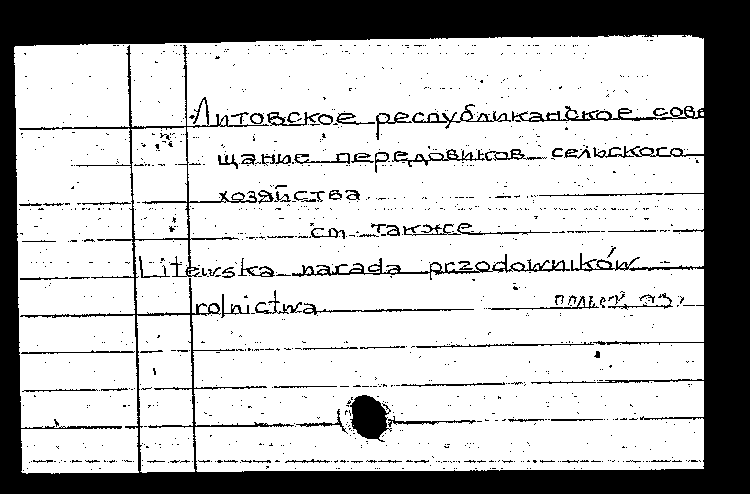 Литовское республиканское сове
щание передовиков сельского
хозяйства
см также
Litewska narada przodowników
rolnictwa польск. яз.